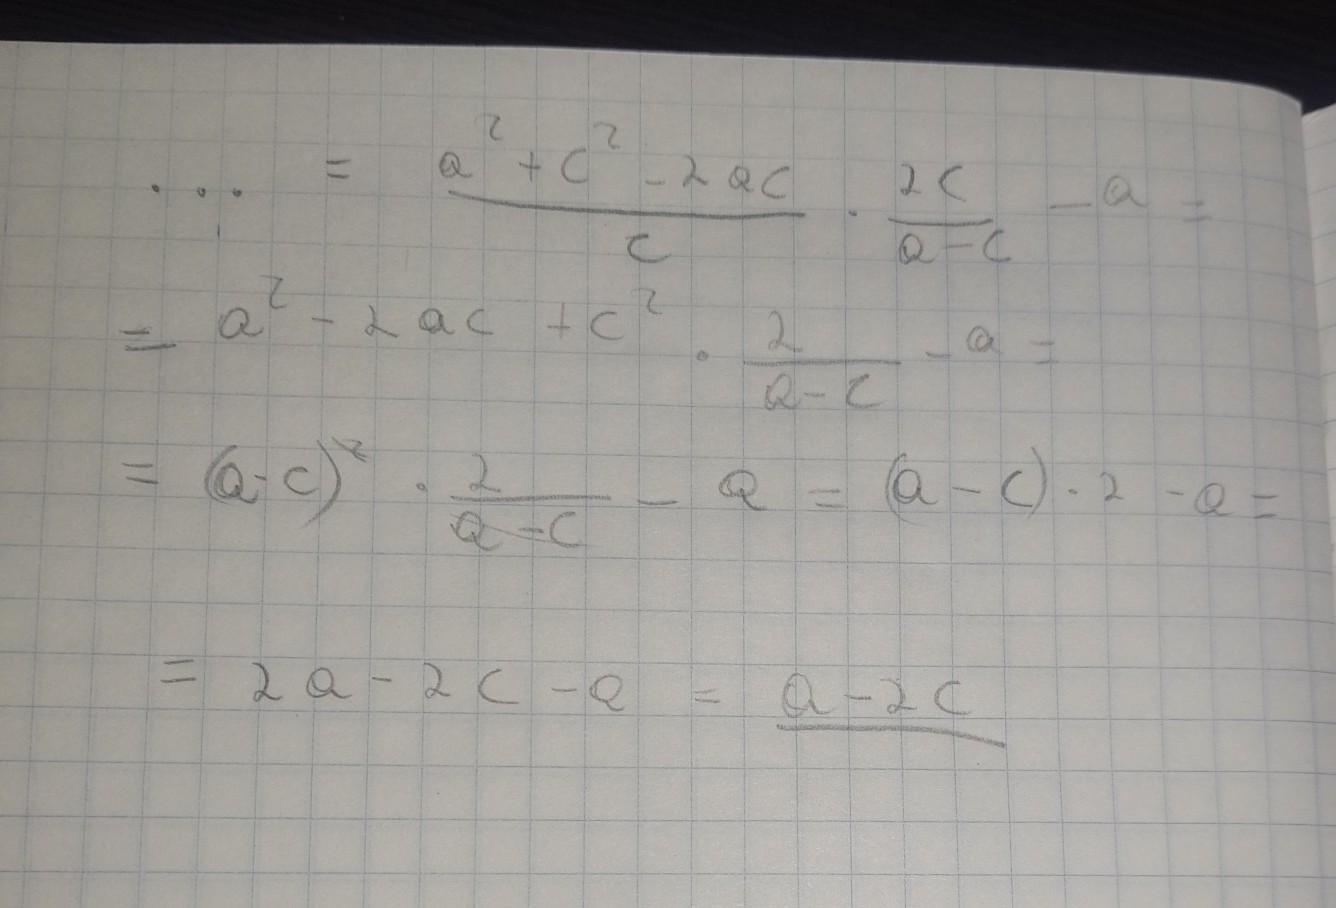 ... = (a² + c² - 2ac)/c · 2c/(a - c) - a =
= a² - 2ac + c² · 2/(a - c) - a =
= (a - c)² · 2/(a - c) - a = (a - c) · 2 - a =
= 2a - 2c - a = a - 2c